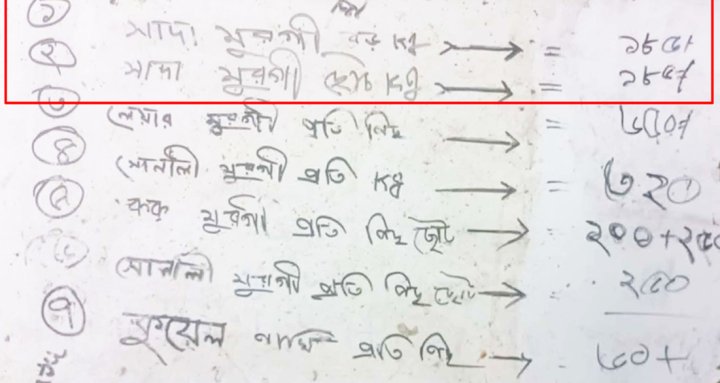 ১ সাদা মুরগী বড় kg → = ১৮৫৲
২ সাদা মুরগী ছোট kg → = ১৮৫৲
৩ লেয়ার মুরগী প্রতি পিছ → =
৪ সোনালী মুরগী প্রতি kg → = ৩২০
৫ কক মুরগী প্রতি পিছ ছোট → = ২০০+২৫০
৬ সোনালী মুরগী প্রতি পিছ ছোট → = ২৫০
৭ কুয়েল পাখি প্রতি পিছ →